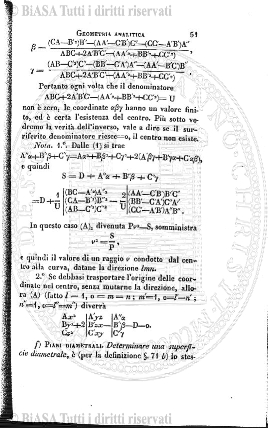 BiASA Tutti i diritti riservati
GEOMETRIA ANALITICA 51
β = (CA—B'²)B''—(AA'—C'B')C''—(CC'—A'B')A''
ABC+2A'B'C'—(AA'²+BB'²+CC'²)
γ = (AB—C'²)C''—(BB'—C'A')A''—(AA'—B'C')B''
ABC+2A'B'C'—(AA'²+BB'²+CC'²)
Pertanto ogni volta che il denominatore
ABC+2A'B'C'—(AA'²+BB'²+CC'²)= U
non è zero, le coordinate αβγ hanno un valore fini-
to, ed è certa l'esistenza del centro. Più sotto ve-
dremo la verità dell'inverso, vale a dire se il sur-
riferito denominatore riesce=o, il centro non esiste.
Nota. 1.° Dalle (1) si trae
e quindi
S = D + A''α + B''β + C''γ
In questo caso (A), divenuta Pv²=S, somministra
v² = S
P
e quindi il valore di un raggio v condotto dal cen-
tro alla curva, datane la direzione lmn.
2.° Se debbasi trasportare l'origine delle coor-
dinate nel centro, senza mutarne la direzione, allo-
ra (A) (fatto l = 1, o = m = n ; m'=1, o=l'=n' ;
n''=1, o=l''=m'') diverrà
Ax² A'yz A''α
By²+2 B'zx— B''β—D=o.
Cz² C'xy C''γ
f) PIANI DIAMETRALI. Determinare una superfi-
cie diametrale, è (per la definizione § 71 b) lo stes-
BiASA Tutti i diritti riservati